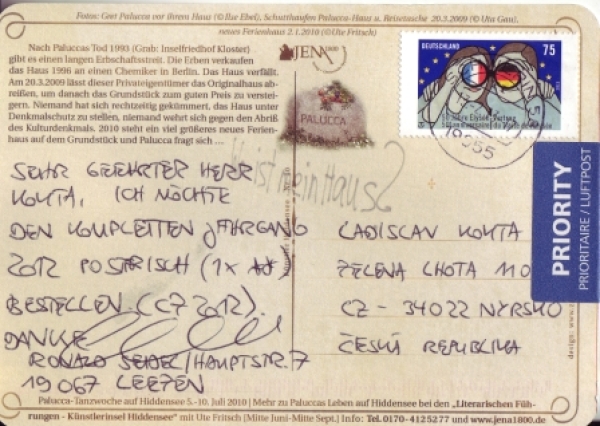 Fotos: Gret Palucca vor ihrem Haus (© Ilse Ebel), Schutthaufen Palucca-Haus u. Reisetasche 20.3.2009 (© Uta Gau),
neues Ferienhaus 2.1.2010 (©Ute Fritsch)
Nach Paluccas Tod 1993 (Grab: Inselfriedhof Kloster)
gibt es einen langen Erbschaftsstreit. Die Erben verkaufen
das Haus 1996 an einen Chemiker in Berlin. Das Haus verfällt.
Am 20.3.2009 lässt dieser Privateigentümer das Originalhaus ab-
reißen, um danach das Grundstück zum guten Preis zu verstei-
gern. Niemand hat sich rechtzeitig gekümmert, das Haus unter
Denkmalschutz zu stellen, niemand wehrt sich gegen den Abriß
des Kulturdenkmals. 2010 steht ein viel größeres neues Ferien-
haus auf dem Grundstück und Palucca fragt sich ...
JENA 1800
PALUCCA
Wo ist mein Haus?
DEUTSCHLAND 75
SEHR GEEHRTER HERR
KOUTA, ICH MÖCHTE
DEN KOMPLETTEN JAHRGANG
2012 POSTFRISCH (1X
BESTELLEN (CZ 2012).
DANKE
RONALD SEIDEL/HAUPTSTR. 7
19067 LEEZEN
LADISLAV KOUTA
ZELENA LHOTA 110
CZ - 34022 NYRSKO
ČESKÁ REPUBLIKA
PRIORITY
PRIORITAIRE / LUFTPOST
Palucca-Tanzwoche auf Hiddensee 5.-10. Juli 2010 | Mehr zu Paluccas Leben auf Hiddensee bei den „Literarischen Füh-
rungen - Künstlerinsel Hiddensee“ mit Ute Fritsch [Mitte Juni-Mitte Sept.] Info: Tel. 0170-4125277 und www.jena1800.de